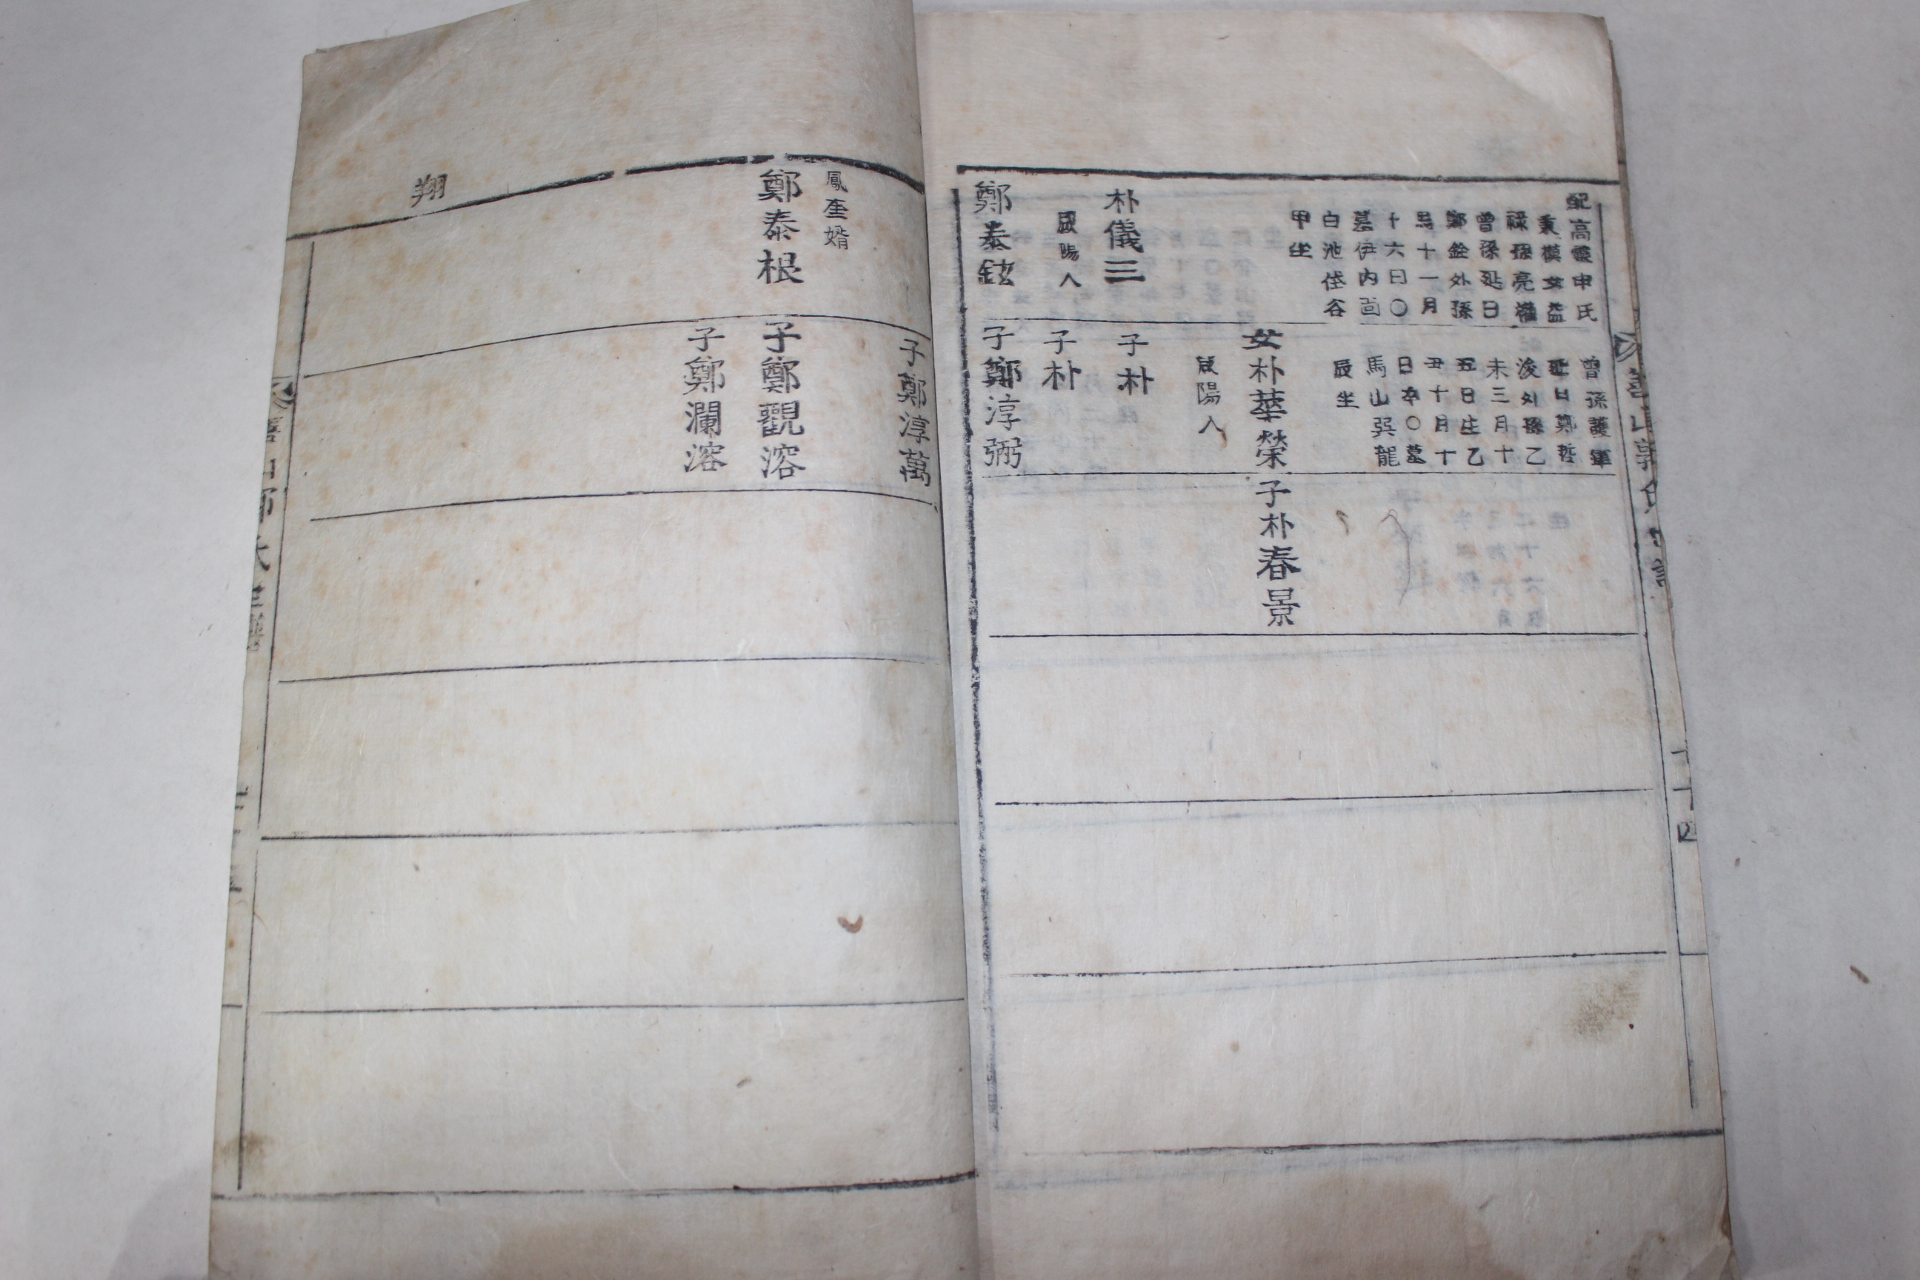 配高靈申氏
秉模女益
祿孫亮權
曾孫延日
鄭銓外孫
十一月
十六日〇
墓伊內面
白池垈谷
甲坐
朴儀三
咸陽人
鄭泰鉉
曾孫護軍
延日鄭哲
浚外孫乙
未三月十
五日生乙
丑十月十
日卒〇墓
馬山吳龍
辰坐
女朴華榮
咸陽人
子朴
子朴
子鄭淳弼
子朴春景
鳳奎婿
鄭泰根
翔
子鄭淳萬
子鄭觀溶
子鄭瀾溶